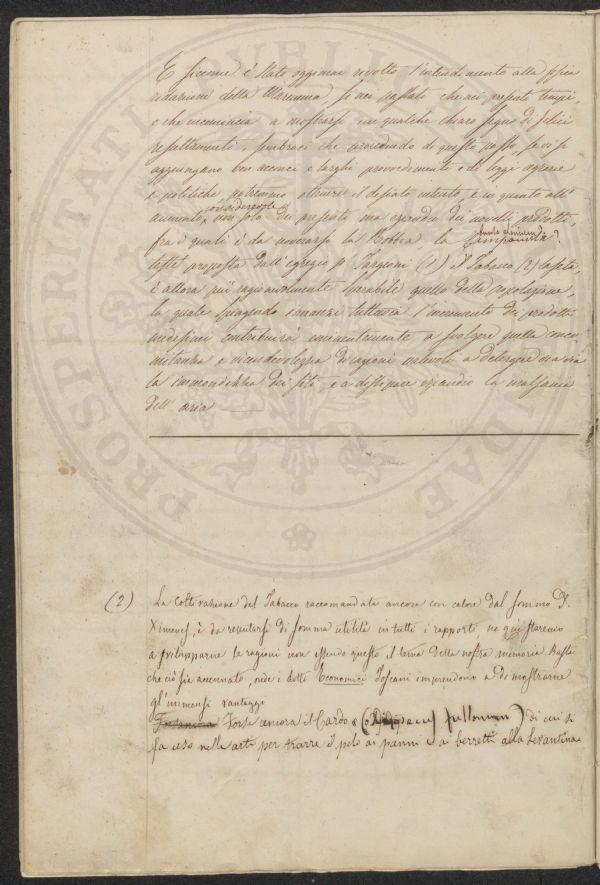 E siccome è stato oggimai rivolto l'intendimento alla fisica
redazione della Maremma, sì nei passati che nei presenti tempi,
e che incomincia a mostrarsi con qualche chiaro segno di felici
resultamenti, sembraci che procedendo di questo passo, se vi si
aggiungano ben acconci e larghi provvedimenti e di leggi agrarie
e politiche potremmo ottenere il desiato intento, e in quanto all'
aumento, non solo dei presenti ma eziandio dei novelli prodotti,
fra i quali è da noverarsi la Robbia, la
testè proposta dall'egregio Sr Targioni (1) il Tabacco (2)
è allora più ragionevolmente sperabile quello della popolazione,
la quale spingendo innanzi tuttavia l'incremento dei prodotti
medesimi contribuirà eminentemente a svolgere quella conco-
mitanza e vicendevolezza di cagioni valevoli a detergere
la immondezza dei siti, e a dissipare eziandio la malsania
dell'aria
(2) La coltivazione del Tabacco raccomandata ancora con calore dal sommo P.
Ximenes, è da reputarsi di somma utilità in tutti i rapporti, nè qui staremo
a svilupparne le ragioni non essendo questo il tema della nostra memoria Basti
che ciò sia accennato, onde i dotti Economici Toscani imprendono a dimostrarne
gl'immensi vantaggi
Forse ancora il Cardo (Dipsacus fullonum) di cui si
fa uso nelle arti per trarre il pelo ai panni e ai berretti alla Levantina
PROSPERITATI PUBLICAE